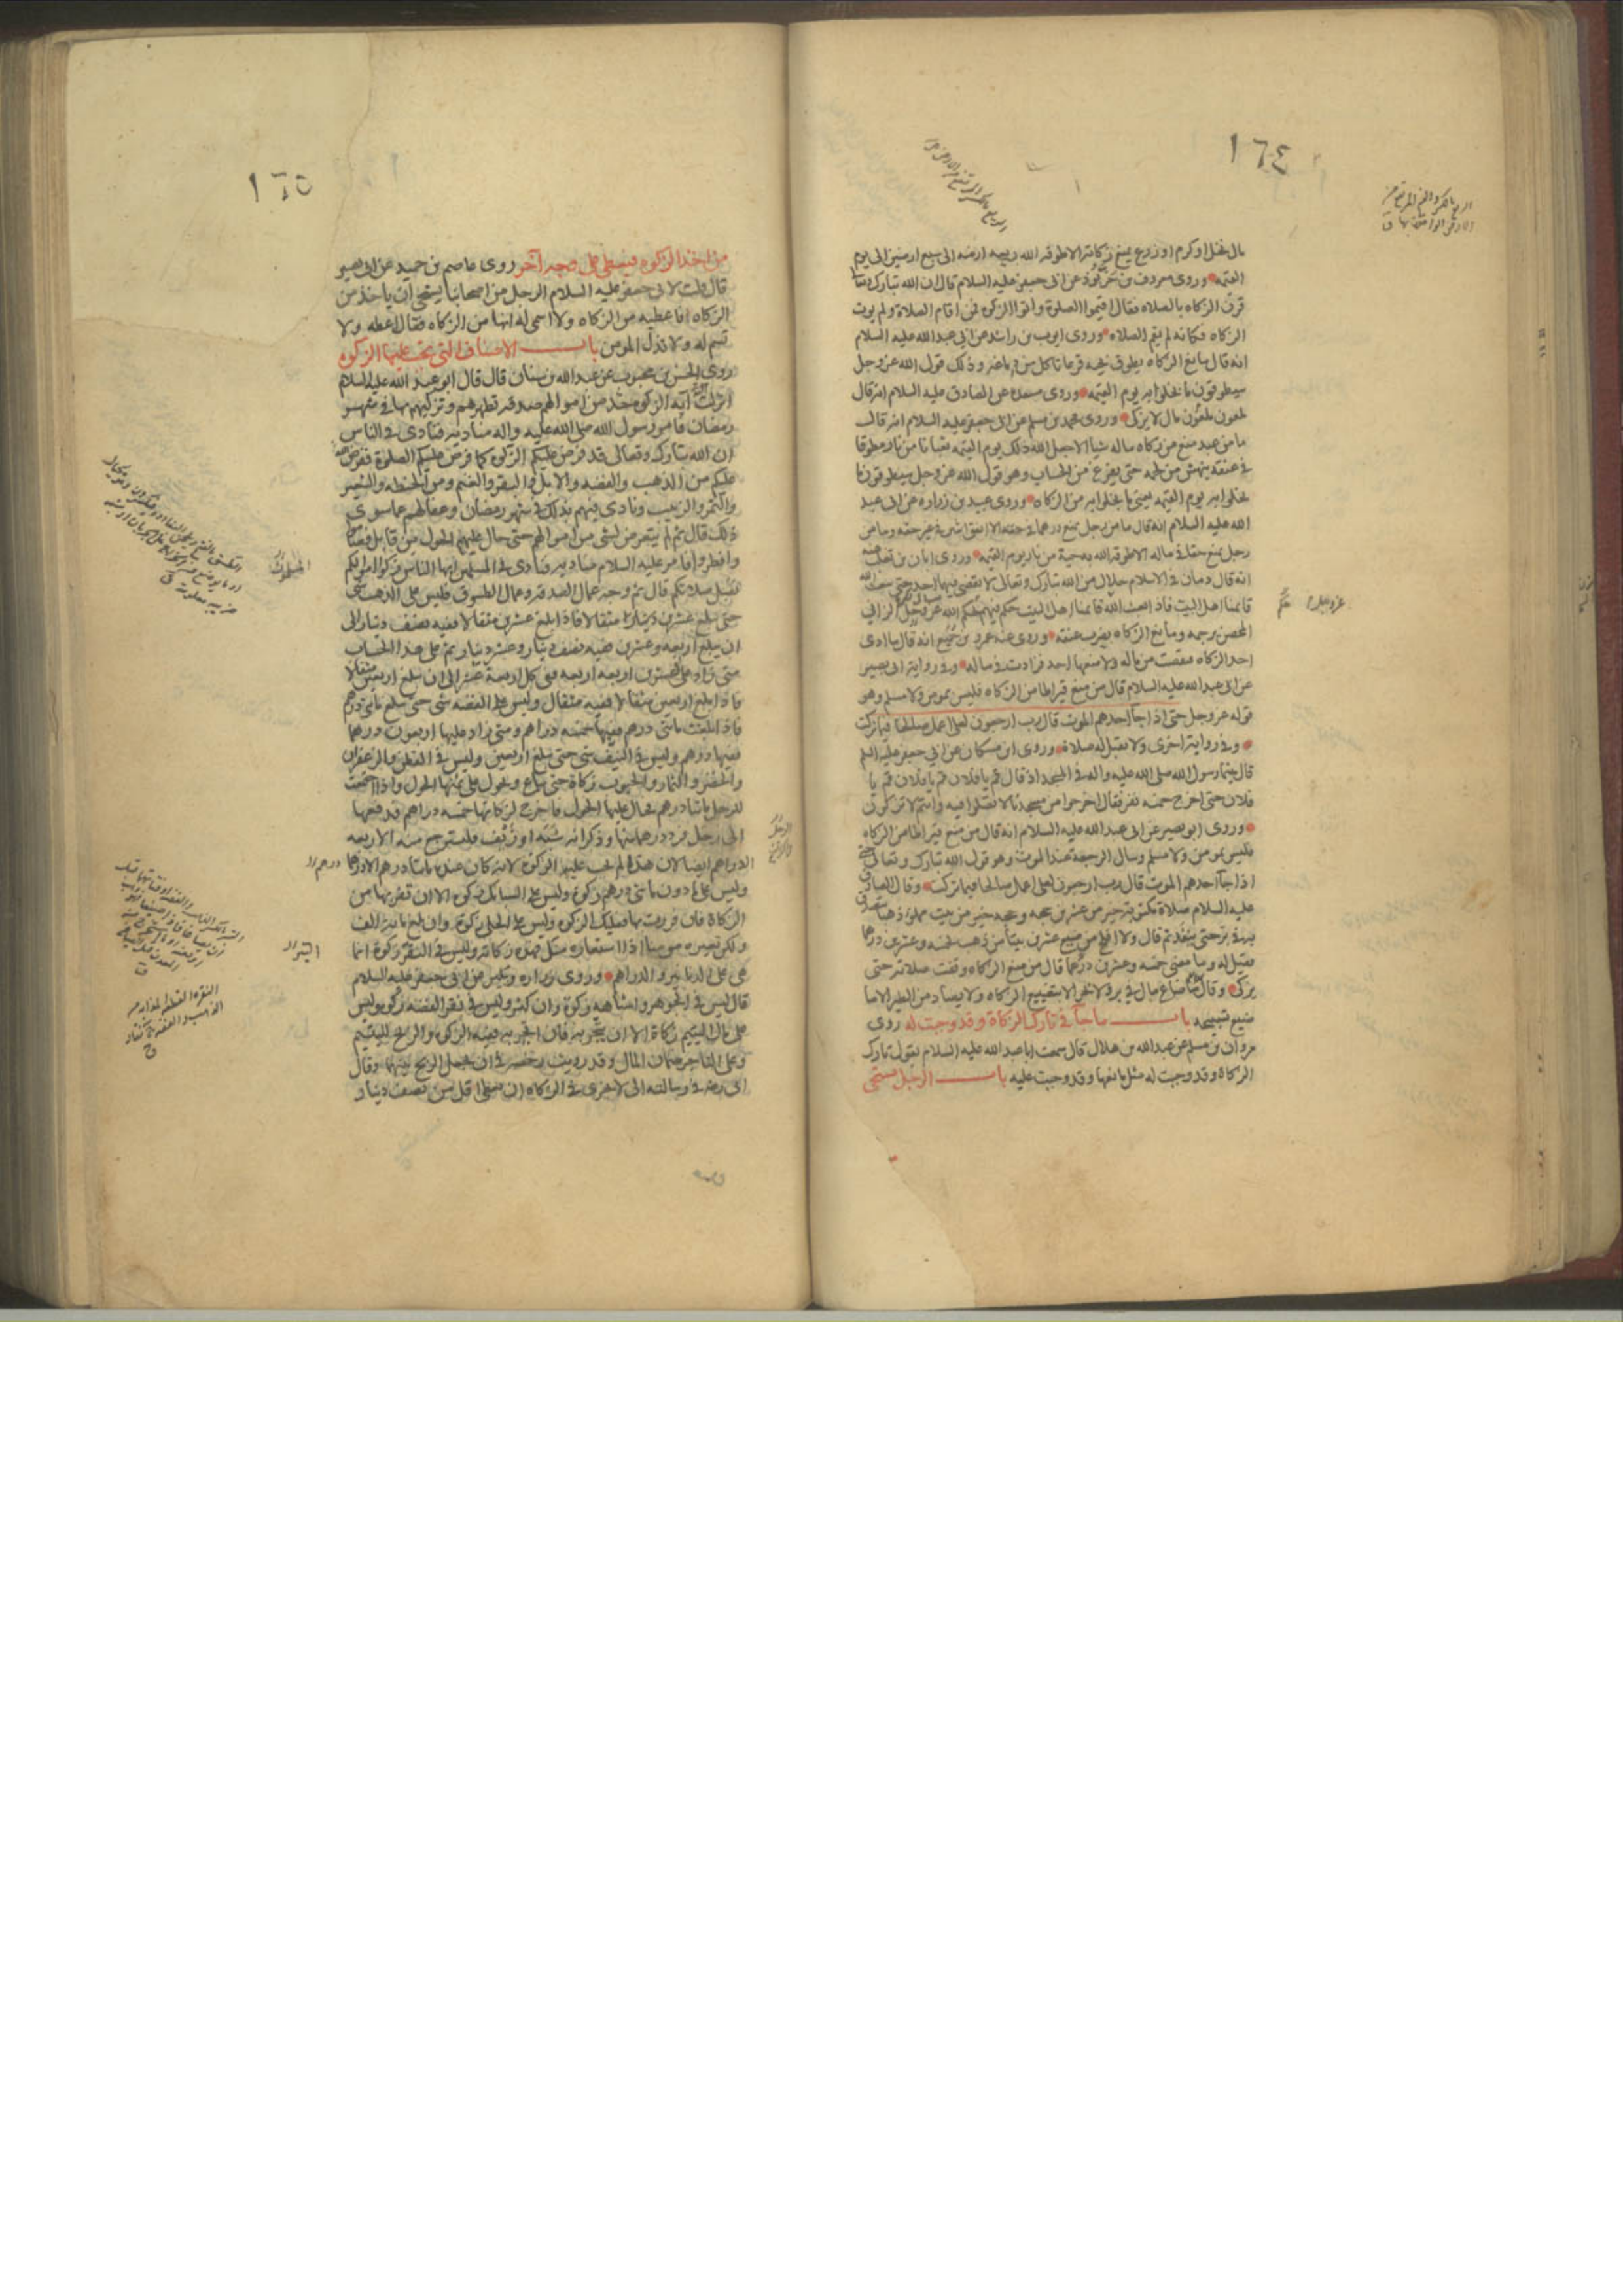 ١٦٤
مال نخل او كرم او زرع يمنع زكاته الا طوقه الله ريعه ارضه الى سبع ارضين الى يوم
القيمه وروى معروف بن خربوذ عن ابى جعفر عليه السلام قال ان الله تبارك وتعالى
قرن الزكاه بالصلاه فقال اقيموا الصلوة واتوا الزكوة فمن اقام الصلاة ولم يوت
الزكاه فكانه لم يقم الصلاه وروى ايوب بن راشد عن ابى عبد الله عليه السلام
انه قال مانع الزكاه يطوق بحيه قرعا تاكل من دماغه وذلك قول الله عز وجل
سيطوقون ما بخلوا به يوم القيمه وروى مسعده عن الصادق عليه السلام انه قال
ملعون ملعون مال لا يزكى وروى محمد بن مسلم عن ابى جعفر عليه السلام انه قال
ما من عبد منع من زكاه ماله شيا الا جعل الله ذلك يوم القيمه ثعبانا من نار مطوقا
فى عنقه ينهش من لحمه حتى يفرغ من الحساب وهو قول الله عز وجل سيطوقون ما
بخلوا به يوم القيمه يعنى ما بخلوا به من الزكاه وروى عبيد بن زراره عن ابى عبد
الله عليه السلام انه قال ما من رجل يمنع درهما فى حقه الا انفق اثنين فى غير حقه وما من
رجل يمنع حقا فى ماله الا طوقه الله به حية من نار يوم القيمه وروى ابان بن تغلب عنه
انه قال دمان فى الاسلام حلال من الله تبارك وتعالى لا يقضى فيهما احد حتى يبعث الله
قائمنا اهل البيت فاذا بعث الله قائمنا اهل البيت حكم فيهم بحكم الله عز وجل الزانى
المحصن يرجمه ومانع الزكاه يضرب عنقه وروى عنه عمرو بن جميع انه قال ما ادى
احد الزكاه فنقصت من ماله ولا منعها احد فزادت فى ماله وفى رواية ابى بصير
عن ابى عبد الله عليه السلام قال من منع قيراطا من الزكاه فليس بمومن ولا مسلم وهو
قوله عز وجل حتى اذا جآ احدهم الموت قال رب ارجعون لعلى اعمل صالحا فيما تركت
وفى رواية اخرى ولا تقبل له صلاة وروى ابن مسكان عن ابى جعفر عليه السلم
قال بينما رسول الله صلى الله عليه واله فى المسجد اذ قال قم يا فلان قم يا فلان قم يا
فلان حتى اخرج خمسه نفر فقال اخرجوا من مسجدنا لا تصلوا فيه وانتم لا تزكون
وروى ابو بصير عن ابى عبد الله عليه السلام انه قال من منع قيراطا من الزكاه
فليس بمومن ولا مسلم وسال الرجعة عند الموت وهو قول الله تبارك وتعالى حتى
اذا جآ احدهم الموت قال رب ارجعون لعلى اعمل صالحا فيما تركت وقال الصادق
عليه السلام صلاة مكتوبة خير من عشرين حجه وحجه خير من بيت مملو ذهبا يتصدق
به فى بر حتى ينفد ثم قال ولا افلح من ضيع عشرين بيتا من ذهب بخمسه وعشرين درهما
فقيل له وما معنى خمسه وعشرين درهما قال من منع الزكاه وقفت صلاته حتى
يزكى وقال ما ضاع مال فى بر ولا بحر الا بتضييع الزكاه ولا يصاد من الطير الا ما
ضيع تسبيحه باب ما جآ فى تارك الزكاة وقد وجبت له روى
مروان بن مسلم عن عبد الله بن هلال قال سمعت ابا عبد الله عليه السلام يقول تارك
الزكاة وقد وجبت له مثل مانعها وقد وجبت عليه باب الرجل يستحى
١٦٥
من اخذ الزكوة فيعطى على وجه آخر روى عاصم بن حميد عن ابى بصير
قال قلت لابى جعفر عليه السلام الرجل من اصحابنا يستحى ان ياخذ من
الزكاه افاعطيه من الزكاه ولا اسمى له انها من الزكاه فقال اعطه ولا
تسم له ولا تذل المومن باب الاصناف التى تجب عليها الزكوة
روى الحسن بن محبوب عن عبد الله بن سنان قال قال ابو عبد الله عليه السلام
انزلت آية الزكوة خذ من اموالهم صدقه تطهرهم وتزكيهم بها فى شهر
رمضان فامر رسول الله صلى الله عليه واله مناديه فنادى فى الناس
ان الله تبارك وتعالى قد فرض عليكم الزكوة كما فرض عليكم الصلوة ففرض الله
عليكم من الذهب والفضه والابل والبقر والغنم ومن الحنطه والشعير
والتمر والزبيب ونادى فيهم بذلك فى شهر رمضان وعفا لهم عما سوى
ذلك قال ثم لم يتعرض لشى من اموالهم حتى حال عليهم الحول من قابل فصاموا
وافطروا فامر عليه السلام مناديه فنادى فى المسلمين ايها الناس زكوا اموالكم
تقبل صلاتكم قال ثم وجه عمال الصدقه وعمال الطسوق فليس على الذهب شى
حتى يبلغ عشرين دينارا مثقالا فاذا بلغ عشرين مثقالا ففيه نصف دينار الى
ان يبلغ اربعه وعشرين ففيه نصف دينار وعشر دينار ثم على هذا الحساب
متى زاد على عشرين اربعه اربعه ففى كل اربعة عشر الى ان يبلغ اربعين مثقالا
فاذا بلغ اربعين مثقالا ففيه مثقال وليس على الفضه شى حتى تبلغ مائتى درهم
فاذا بلغت مائتى درهم ففيها خمسه دراهم ومتى زاد عليها اربعون درهما
ففيها درهم وليس فى النيف شى حتى يبلغ اربعين وليس فى القطن والزعفران
والخضر والثمار والحبوب زكاة حتى تباع ويحول على ثمنها الحول واذا اجتمعت
للرجل مائتا درهم فحال عليها الحول فاخرج لزكاتها خمسه دراهم فدفعها
الى رجل فرد درهما منها وذكر انه شبه او زيف فليسترجع منه الاربعه
الدراهم ايضا لان هذه لم تجب عليها الزكوة لانه كان عنده مائتا درهم الا درهما
وليس على ما دون مائتى درهم زكوة وليس على السبائك زكوة الا ان تفر بها من
الزكاة فان فررت بها فعليك الزكوة وليس على الحلى زكوة وان بلغ مائة الف
ولكن تعيره مومنا اذا استعاره منك فهذه زكاته وليس فى النقر زكوة انما
هى على الدنانير والدراهم وروى زراره وبكير عن ابى جعفر عليه السلام
قال ليس فى الجوهر واشباهه زكوة وان كثر وليس فى نقر الفضه زكوة وليس
على مال اليتيم زكاة الا ان يتجر به فان اتجر به ففيه الزكوة والربح لليتيم
وعلى التاجر ضمان المال وقد رويت رخصه فى ان يجعل الربح بينهما وقال
ابى رض فى رسالته الى لا يجزى فى الزكاه ان يعطى اقل من نصف دينار